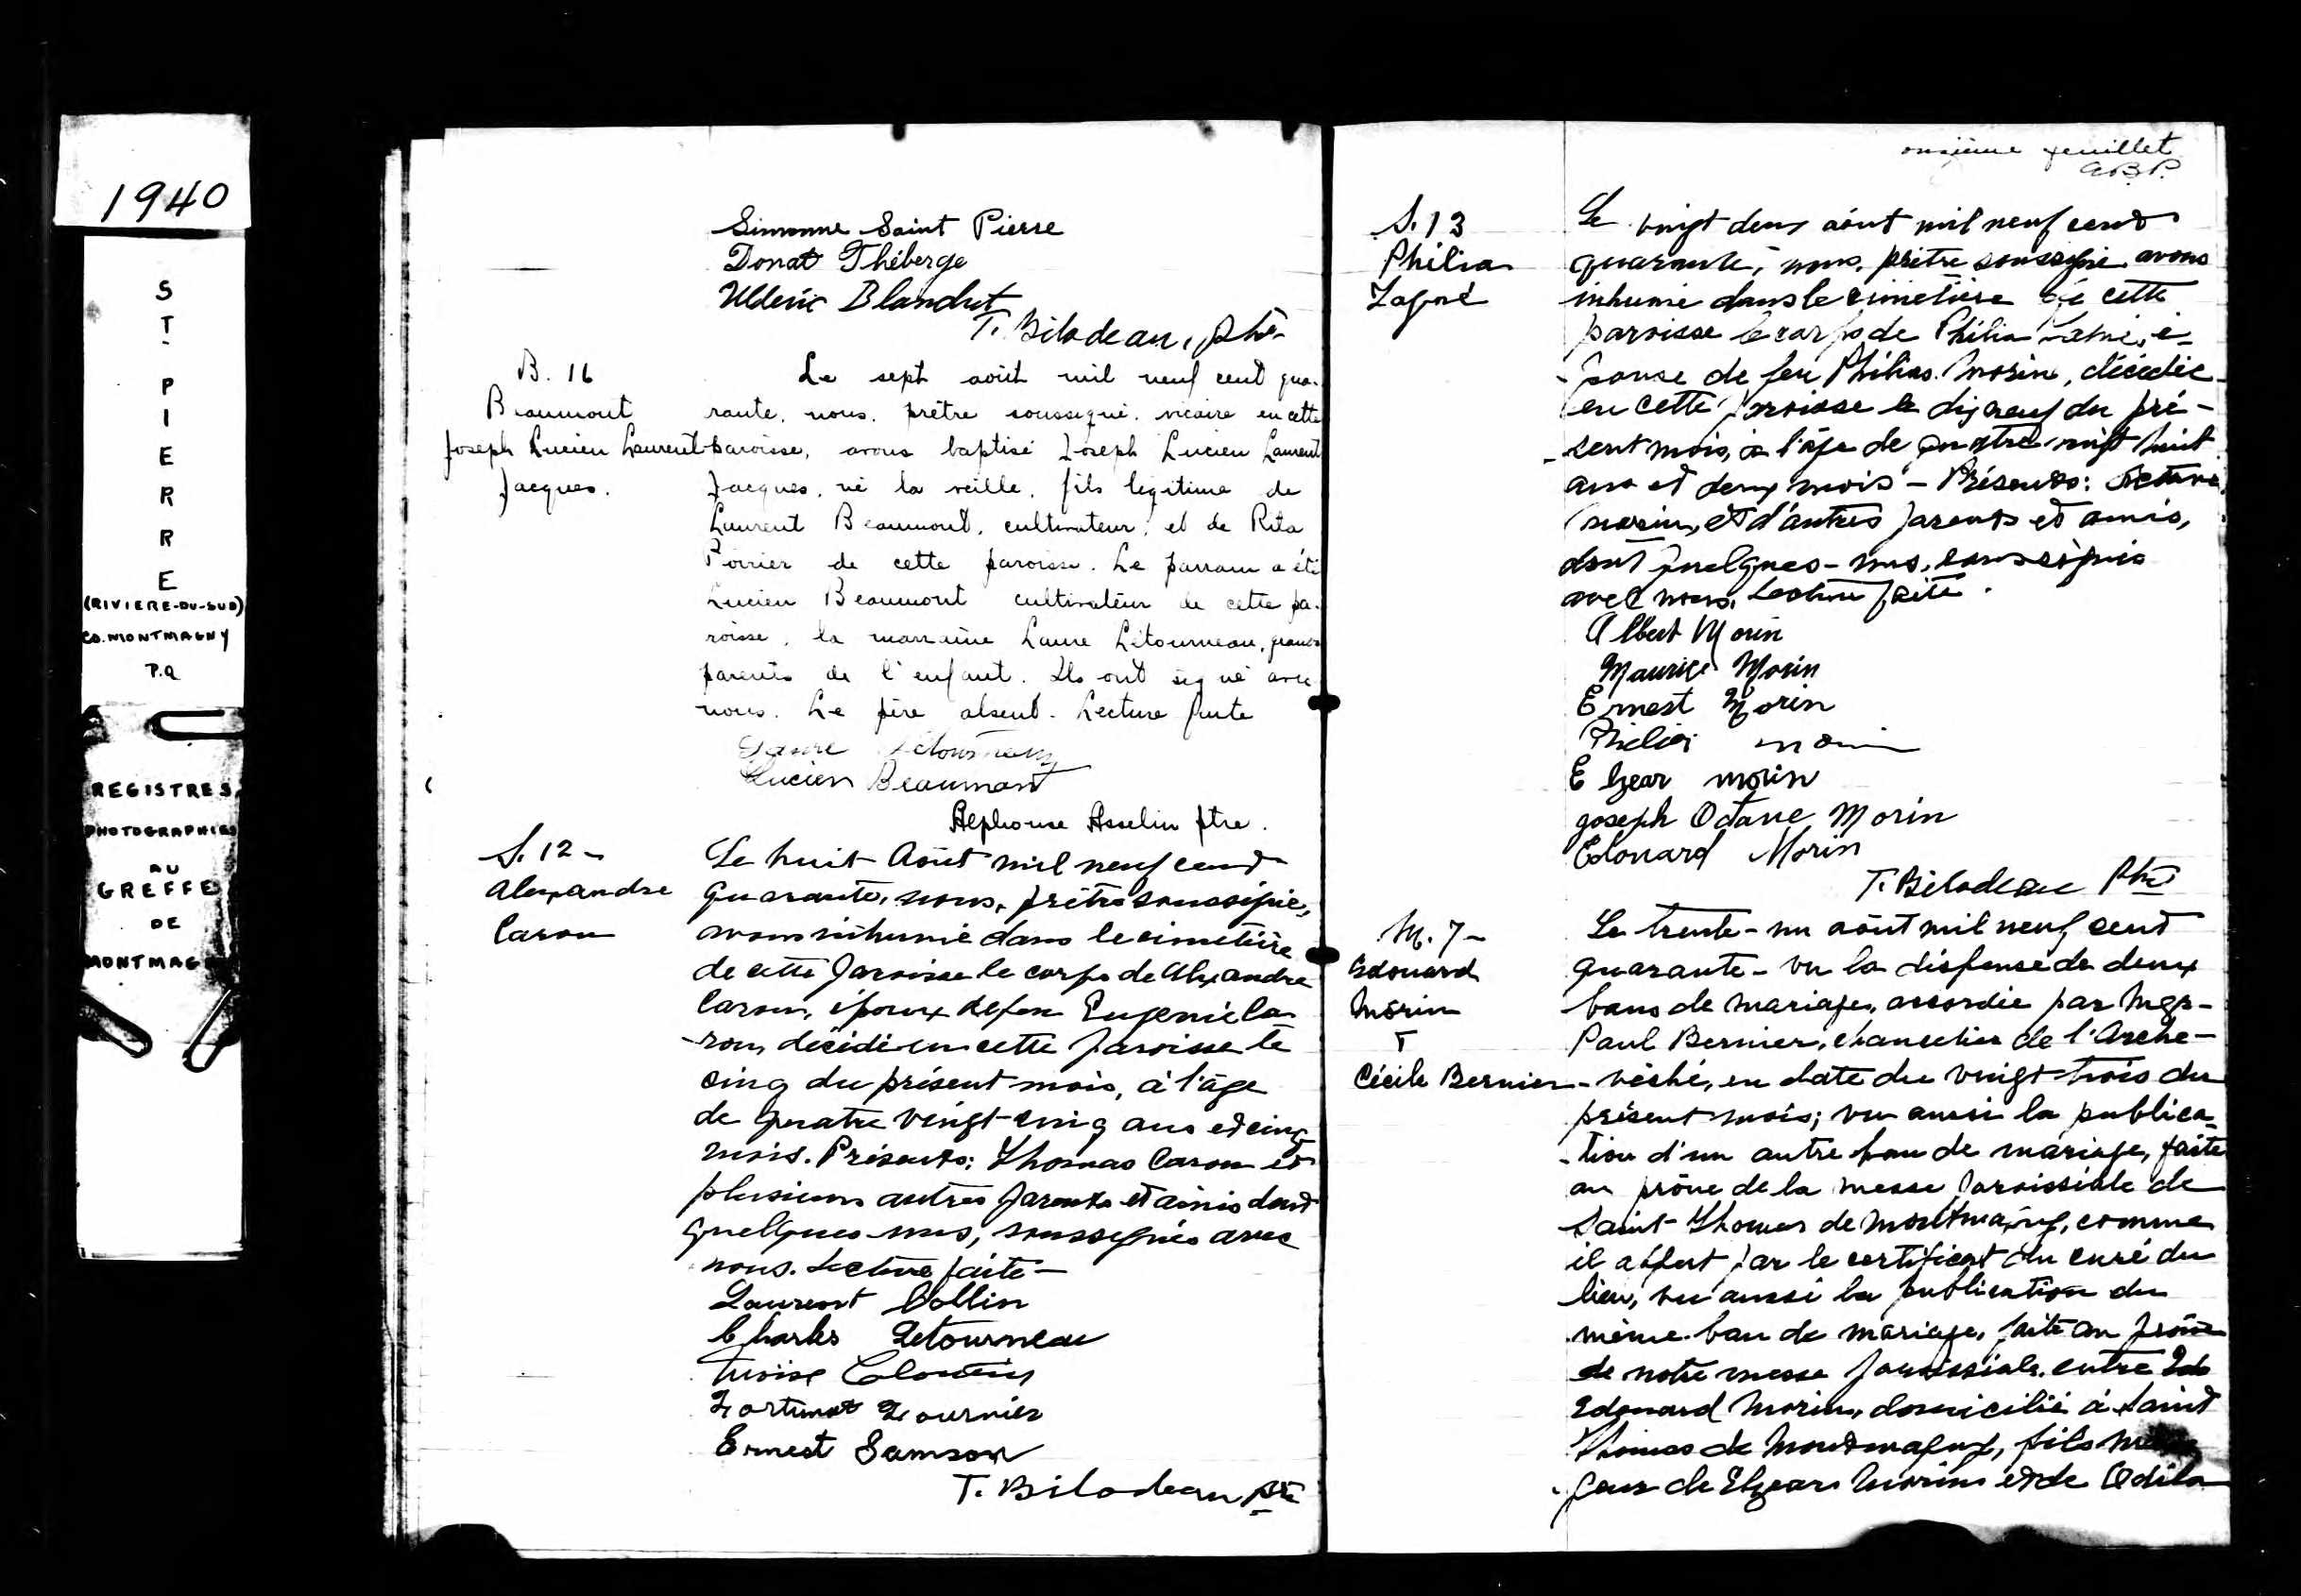 1940
ST-PIERRE
(RIVIERE-DU-SUD)
CO. MONTMAGNY
P.Q
REGISTRES
PHOTOGRAPHIES
AU
GREFFE
DE
MONTMAG
Simonne Saint Pierre
Donat Théberge
Ulderic Blanchet
T. Bilodeau, Ptre
B. 16
Beaumont
Joseph Lucien Laurent
Jacques.
Le sept août mil neuf cent qua-
rante, nous, prêtre soussigné, vicaire en cette
paroisse, avons baptisé Joseph Lucien Laurent
Jacques, né la veille, fils légitime de
Laurent Beaumont, cultivateur, et de Rita
Poirier de cette paroisse. Le parrain a été
Lucien Beaumont cultivateur de cette pa-
roisse, la marraine Laure Létourneau, grands
parents de l'enfant. Ils ont signé avec
nous. Le père absent. Lecture faite
Laure Létourneau
Lucien Beaumont
Alphonse Asselin ptre.
S. 12 -
Alexandre
Caron
Le huit Août mil neuf cent
quarante, nous, prêtre soussigné,
avons inhumé dans le cimetière
de cette paroisse le corps de Alexandre
Caron, époux de feu Eugénie Ca-
-ron, décédé en cette paroisse le
cinq du présent mois, à l'âge
de quatre vingt-cinq ans et cinq
mois. Présents: Thomas Caron et
plusieurs autres parents et amis dont
quelques-uns, soussignés avec
nous. Lecture faite -
Laurent Collin
Charles Letourneau
Fortunat Fournier
Ernest Samson
T. Bilodeau ptre
onzième feuillet
S. 13
Philia
Le vingt deux août mil neuf cent
quarante, nous, prêtre soussigné avons
inhumé dans le cimetière de cette
paroisse le corps de Philia é-
-pouse de feu Philias Morin, décédée
en cette paroisse le dix neuf du pré-
-sent mois, à l'âge de quatre-vingt huit
ans et deux mois - Présents: Octave
Morin, et d'autres parents et amis,
dont quelques-uns, soussignés
avec nous. Lecture faite.
Albert Morin
Maurice Morin
Ernest Morin
Morin
Elzear Morin
Joseph Octave Morin
Edouard Morin
T. Bilodeau Ptre
M. 7 -
Edouard
Morin
Cécile Bernier
Le trente-un août mil neuf cent
quarante - vu la dispense de deux
bans de mariage, accordée par Mgr -
Paul Bernier, chancelier de l'Arche-
-vêché, en date du vingt-trois du
présent mois; vu aussi la publica-
-tion d'un autre ban de mariage, faite
au prône de la messe paroissiale de
Saint-Thomas de Montmagny, comme
il appert par le certificat du curé du
lieu, vu aussi la publication du
même ban de mariage, faite au prône
de notre messe paroissiale, entre Edo
Edouard Morin, domicilié à Saint
Thomas de Montmagny, fils ma-
-jeur de Elzear Morin et de Odila